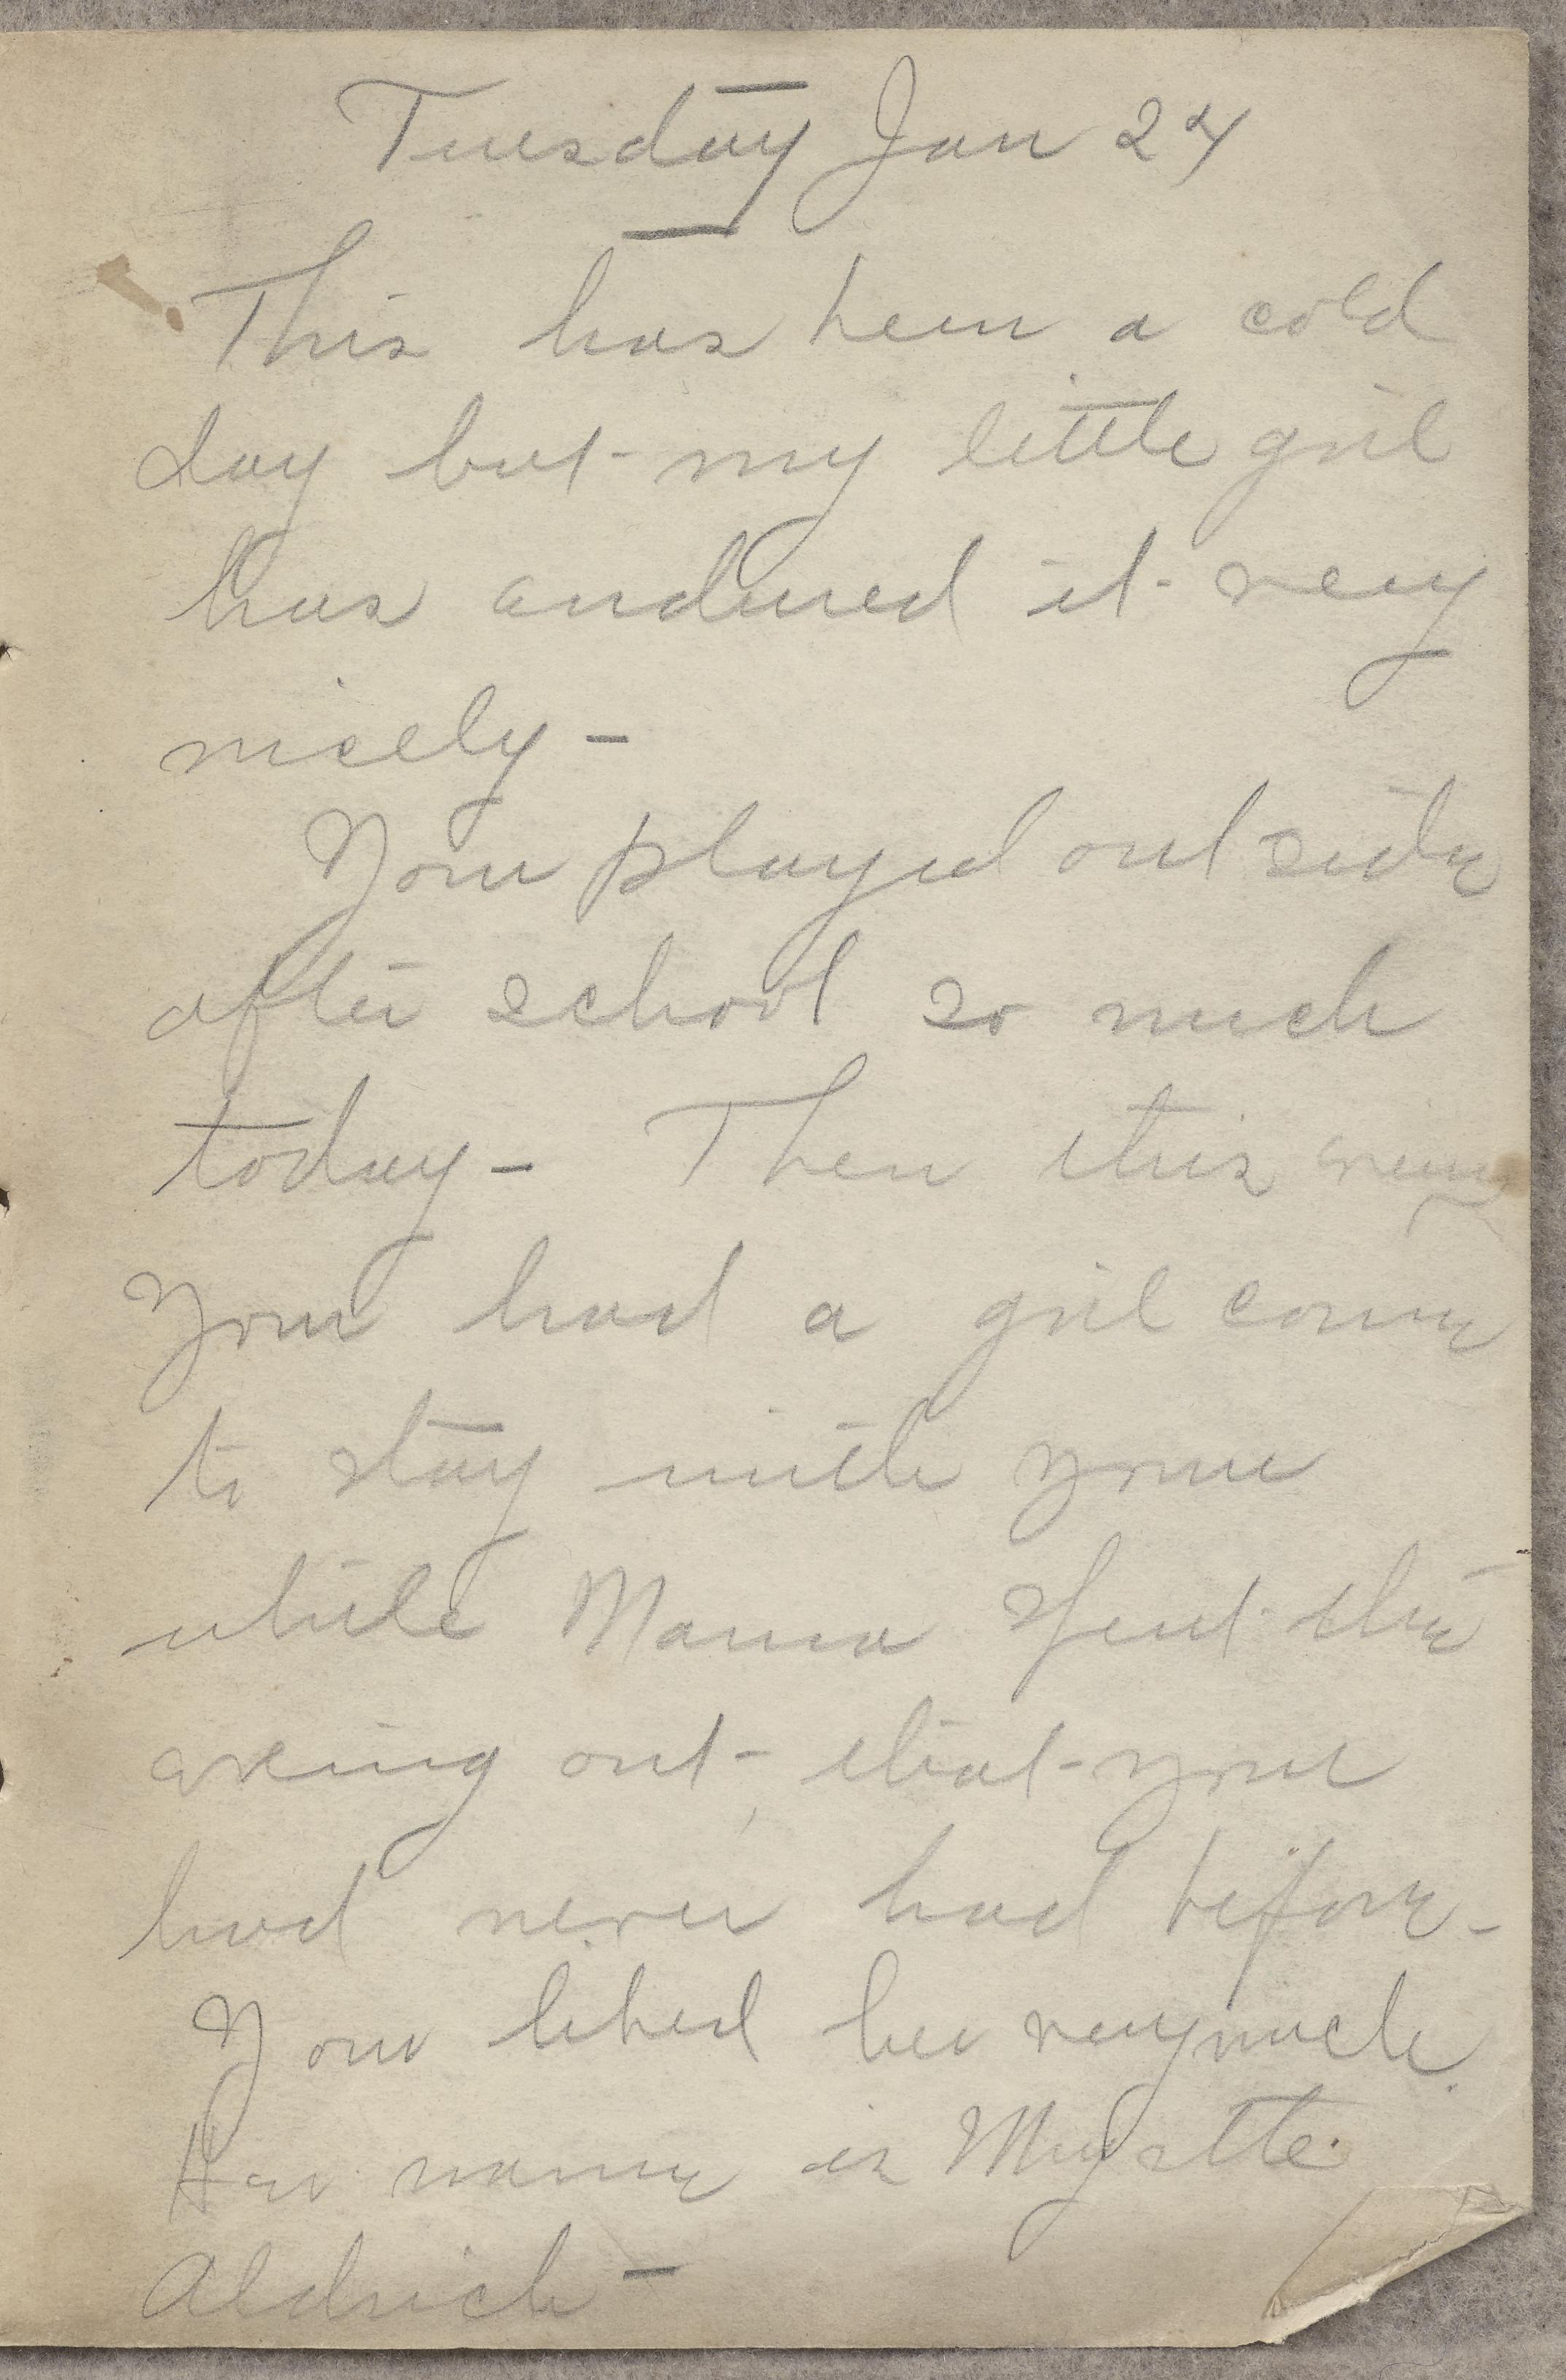 Tuesday Jan 24
This has been a cold
day but my little girl
has endured it very
nicely -
You played out side
after school so much
today - Then this evening
You had a girl come
to stay with you
while Mama spent the
evening out, that you
had never had before -
You liked her very much.
Her name is
Aldrich -